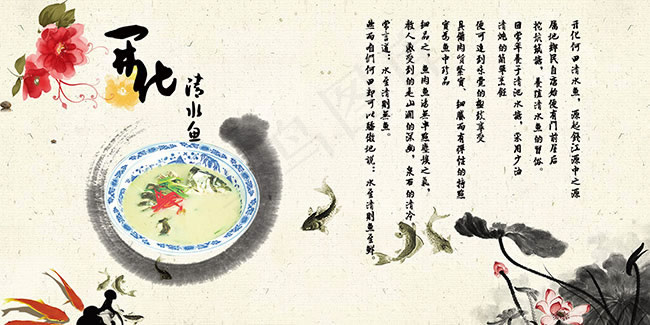 开化
清水鱼
开化何田清水鱼，源起钱江源中之源
属地乡民自唐始便有门前屋后
挖坑筑塘，养殖清水鱼的习俗。
日常养于清池水塘，采用少油
清炖的简单烹饪
便可达到味觉的极致享受
具备肉质紧实、细腻而有弹性的特点
实为鱼中珍品
细品之，鱼肉鱼汤无半点尘埃之气，
教人感受到的是山涧的深幽，泉石的清冷
常言道：水至清则无鱼。
然而咱们何田却可以骄傲地说：水至清则鱼至鲜。